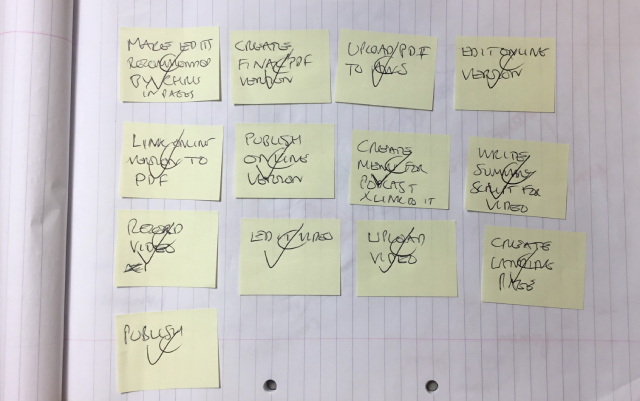 MAKE EDITS
RECOMMENDED
BY CHRIS
IN PAGES
CREATE
FINAL PDF
VERSION
UPLOAD PDF
TO AWS
EDIT ONLINE
VERSION
LINK ONLINE
VERSION TO
PDF
PUBLISH
ONLINE
VERSION
CREATE
MENU FOR
PODCAST
LINK TO IT
WRITE
SUMMARY
SCRIPT FOR
VIDEO
RECORD
VIDEO
EDIT VIDEO
UPLOAD
VIDEO
CREATE
LANDING
PAGE
PUBLISH